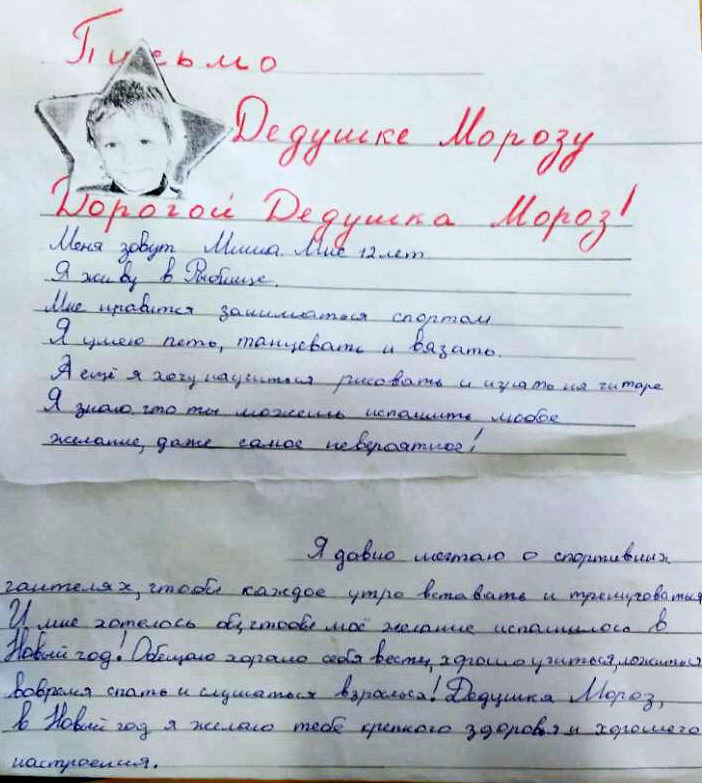 Письмо
Дедушке Морозу
Дорогой Дедушка Мороз!
Меня зовут Миша. Мне 12 лет
Я живу в Рыбнице.
Мне нравится заниматься спортом
Я умею петь, танцевать и вязать.
А ещё я хочу научиться рисовать и играть на гитаре
Я знаю, что ты можешь исполнить любое
желание, даже самое невероятное!
Я давно мечтаю о спортивных
гантелях, чтобы каждое утро вставать и тренироваться
И мне хотелось бы, чтобы моё желание исполнилось в
Новый год! Обещаю хорошо себя вести, хорошо учиться, ложиться
вовремя спать и слушаться взрослых! Дедушка Мороз,
в Новый год я желаю тебе крепкого здоровья и хорошего
настроения.